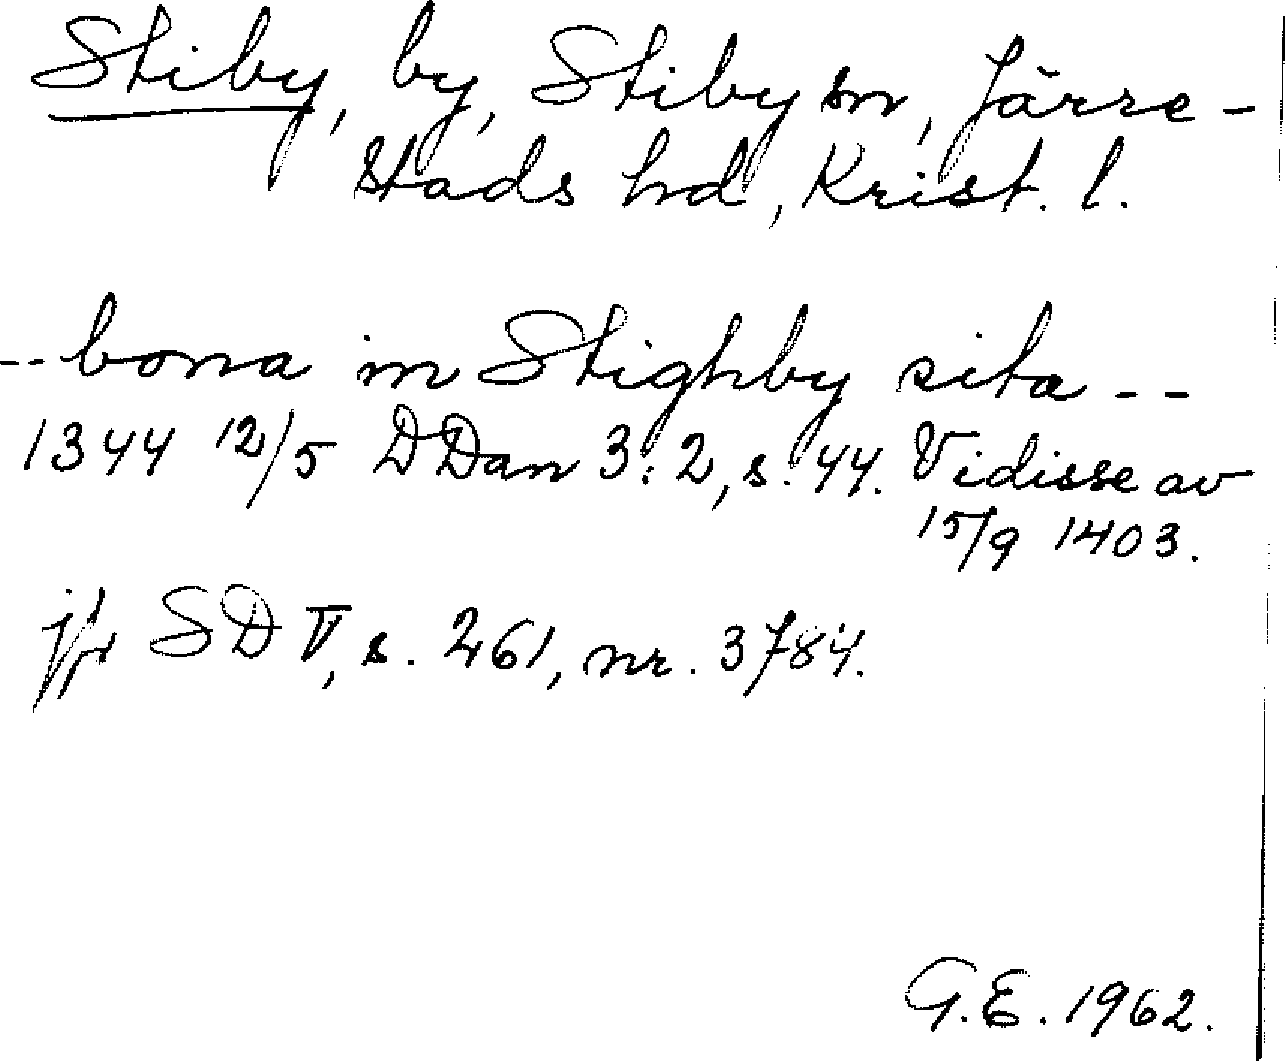 Stiby, by, Stiby sn, Järre-
stads hd, Krist. l.
-- bona in Stighby sita --
1344 12/5 DDan 3:2, s. 44. Vidisse av
15/9 1403.
jfr SD V, s. 261, nr. 3784.
G.E. 1962.